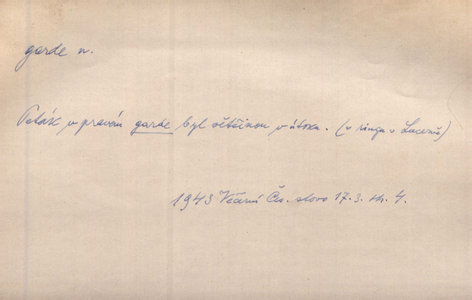 garde n.
Poták v pravém garde byl většinou v útoku. (v ringu v Lucerně)
1943 Večerní Čes. slovo 17.3. str. 4.